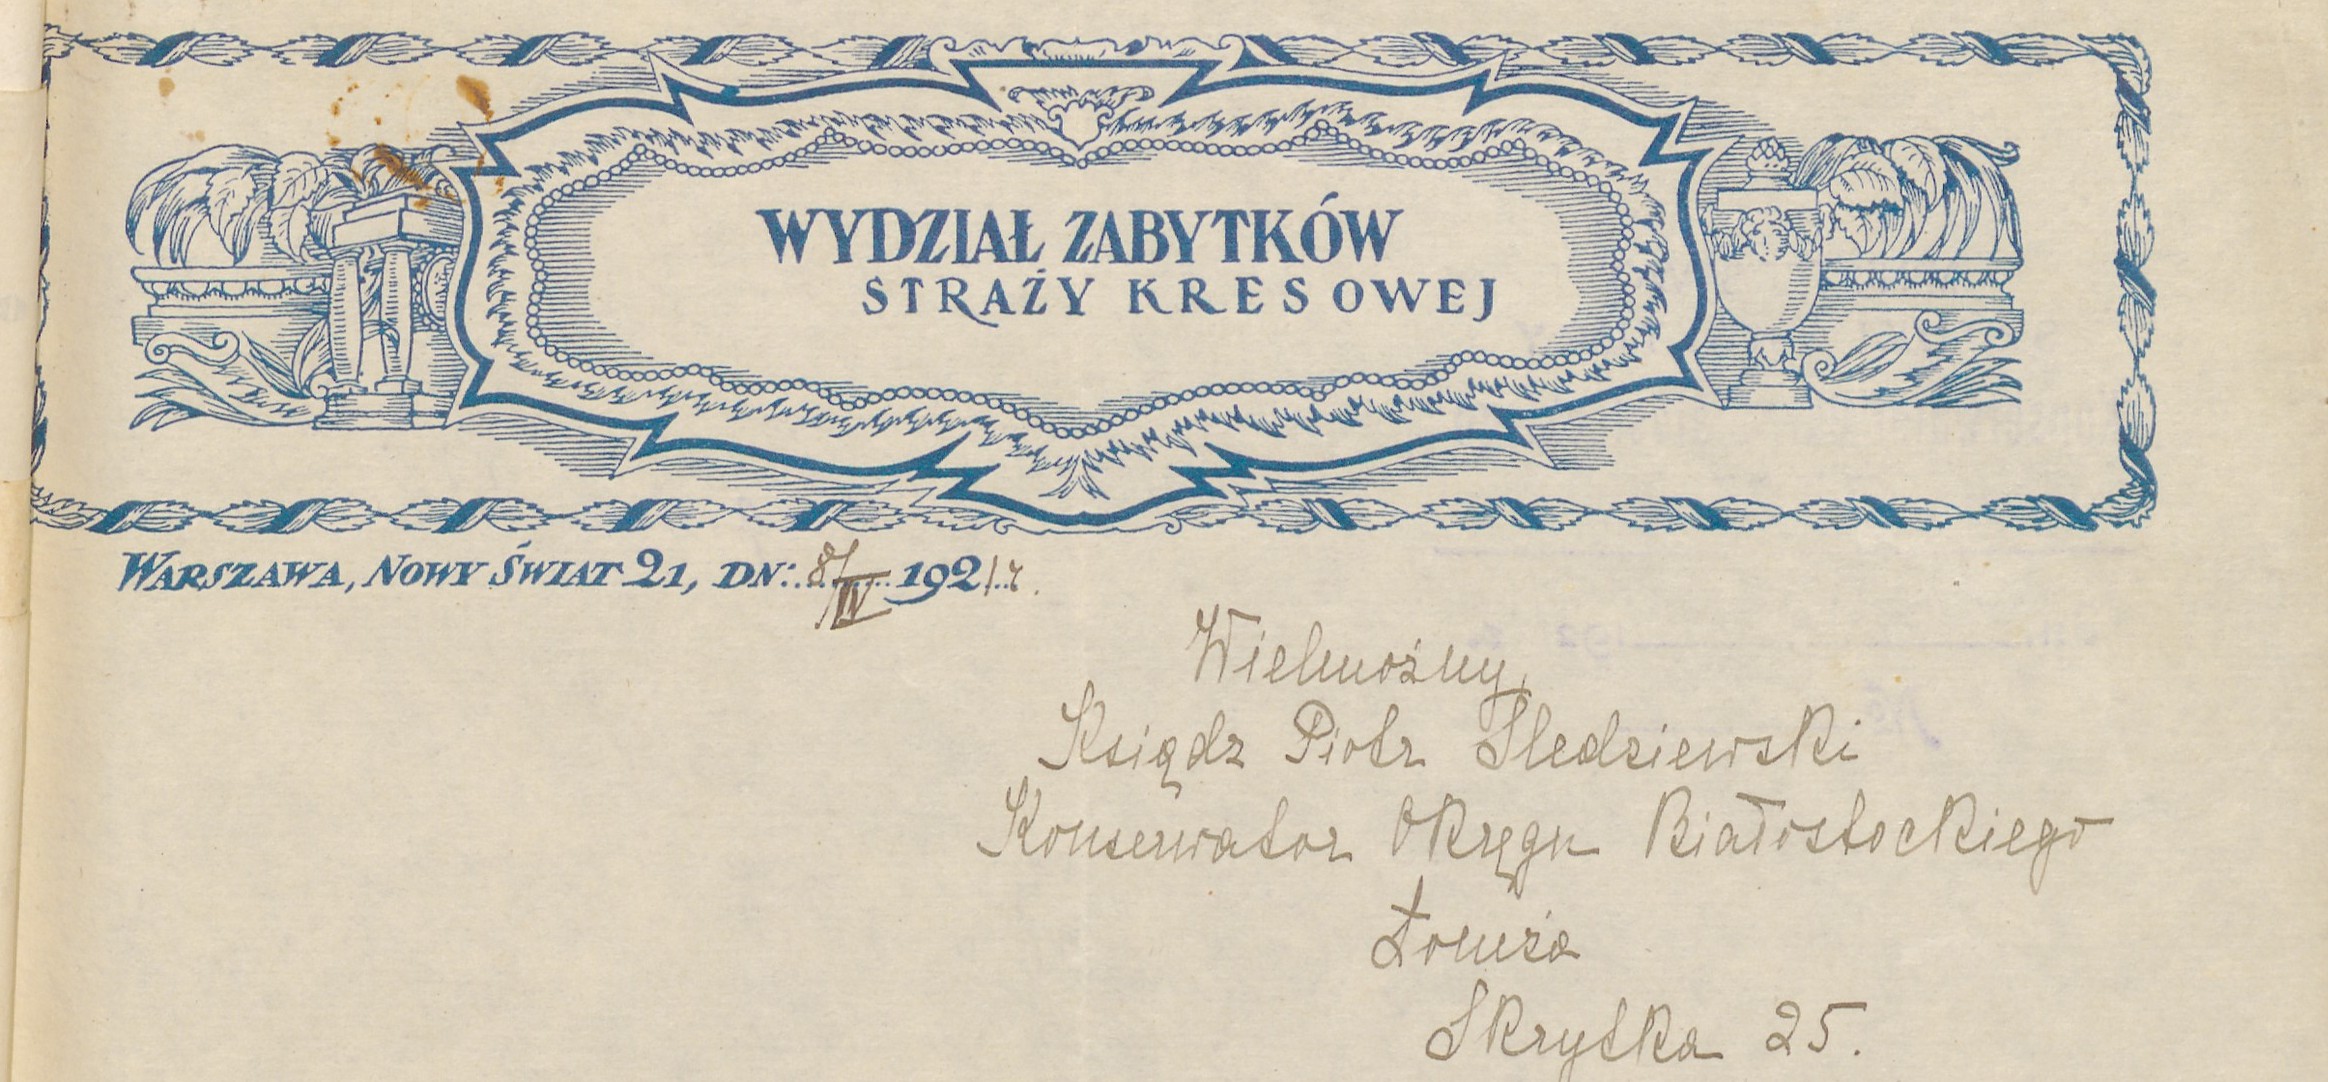 WYDZIAŁ ZABYTKÓW
STRAŻY KRESOWEJ
WARSZAWA, NOWY ŚWIAT 21, DN: 8/IV 1921 r.
Wielmożny
Ksiądz Piotr Śledziewski
Konserwator Okręgu Białostockiego
Łomża
Skrytka 25.